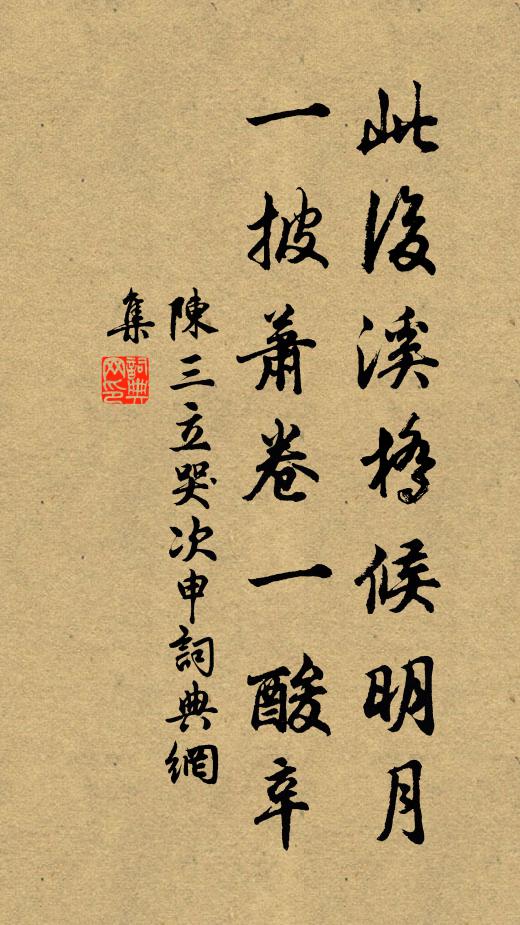 此後溪橋候明月
一披蕭卷一酸辛
陳三立哭次申詞典網
集
詞典
网印